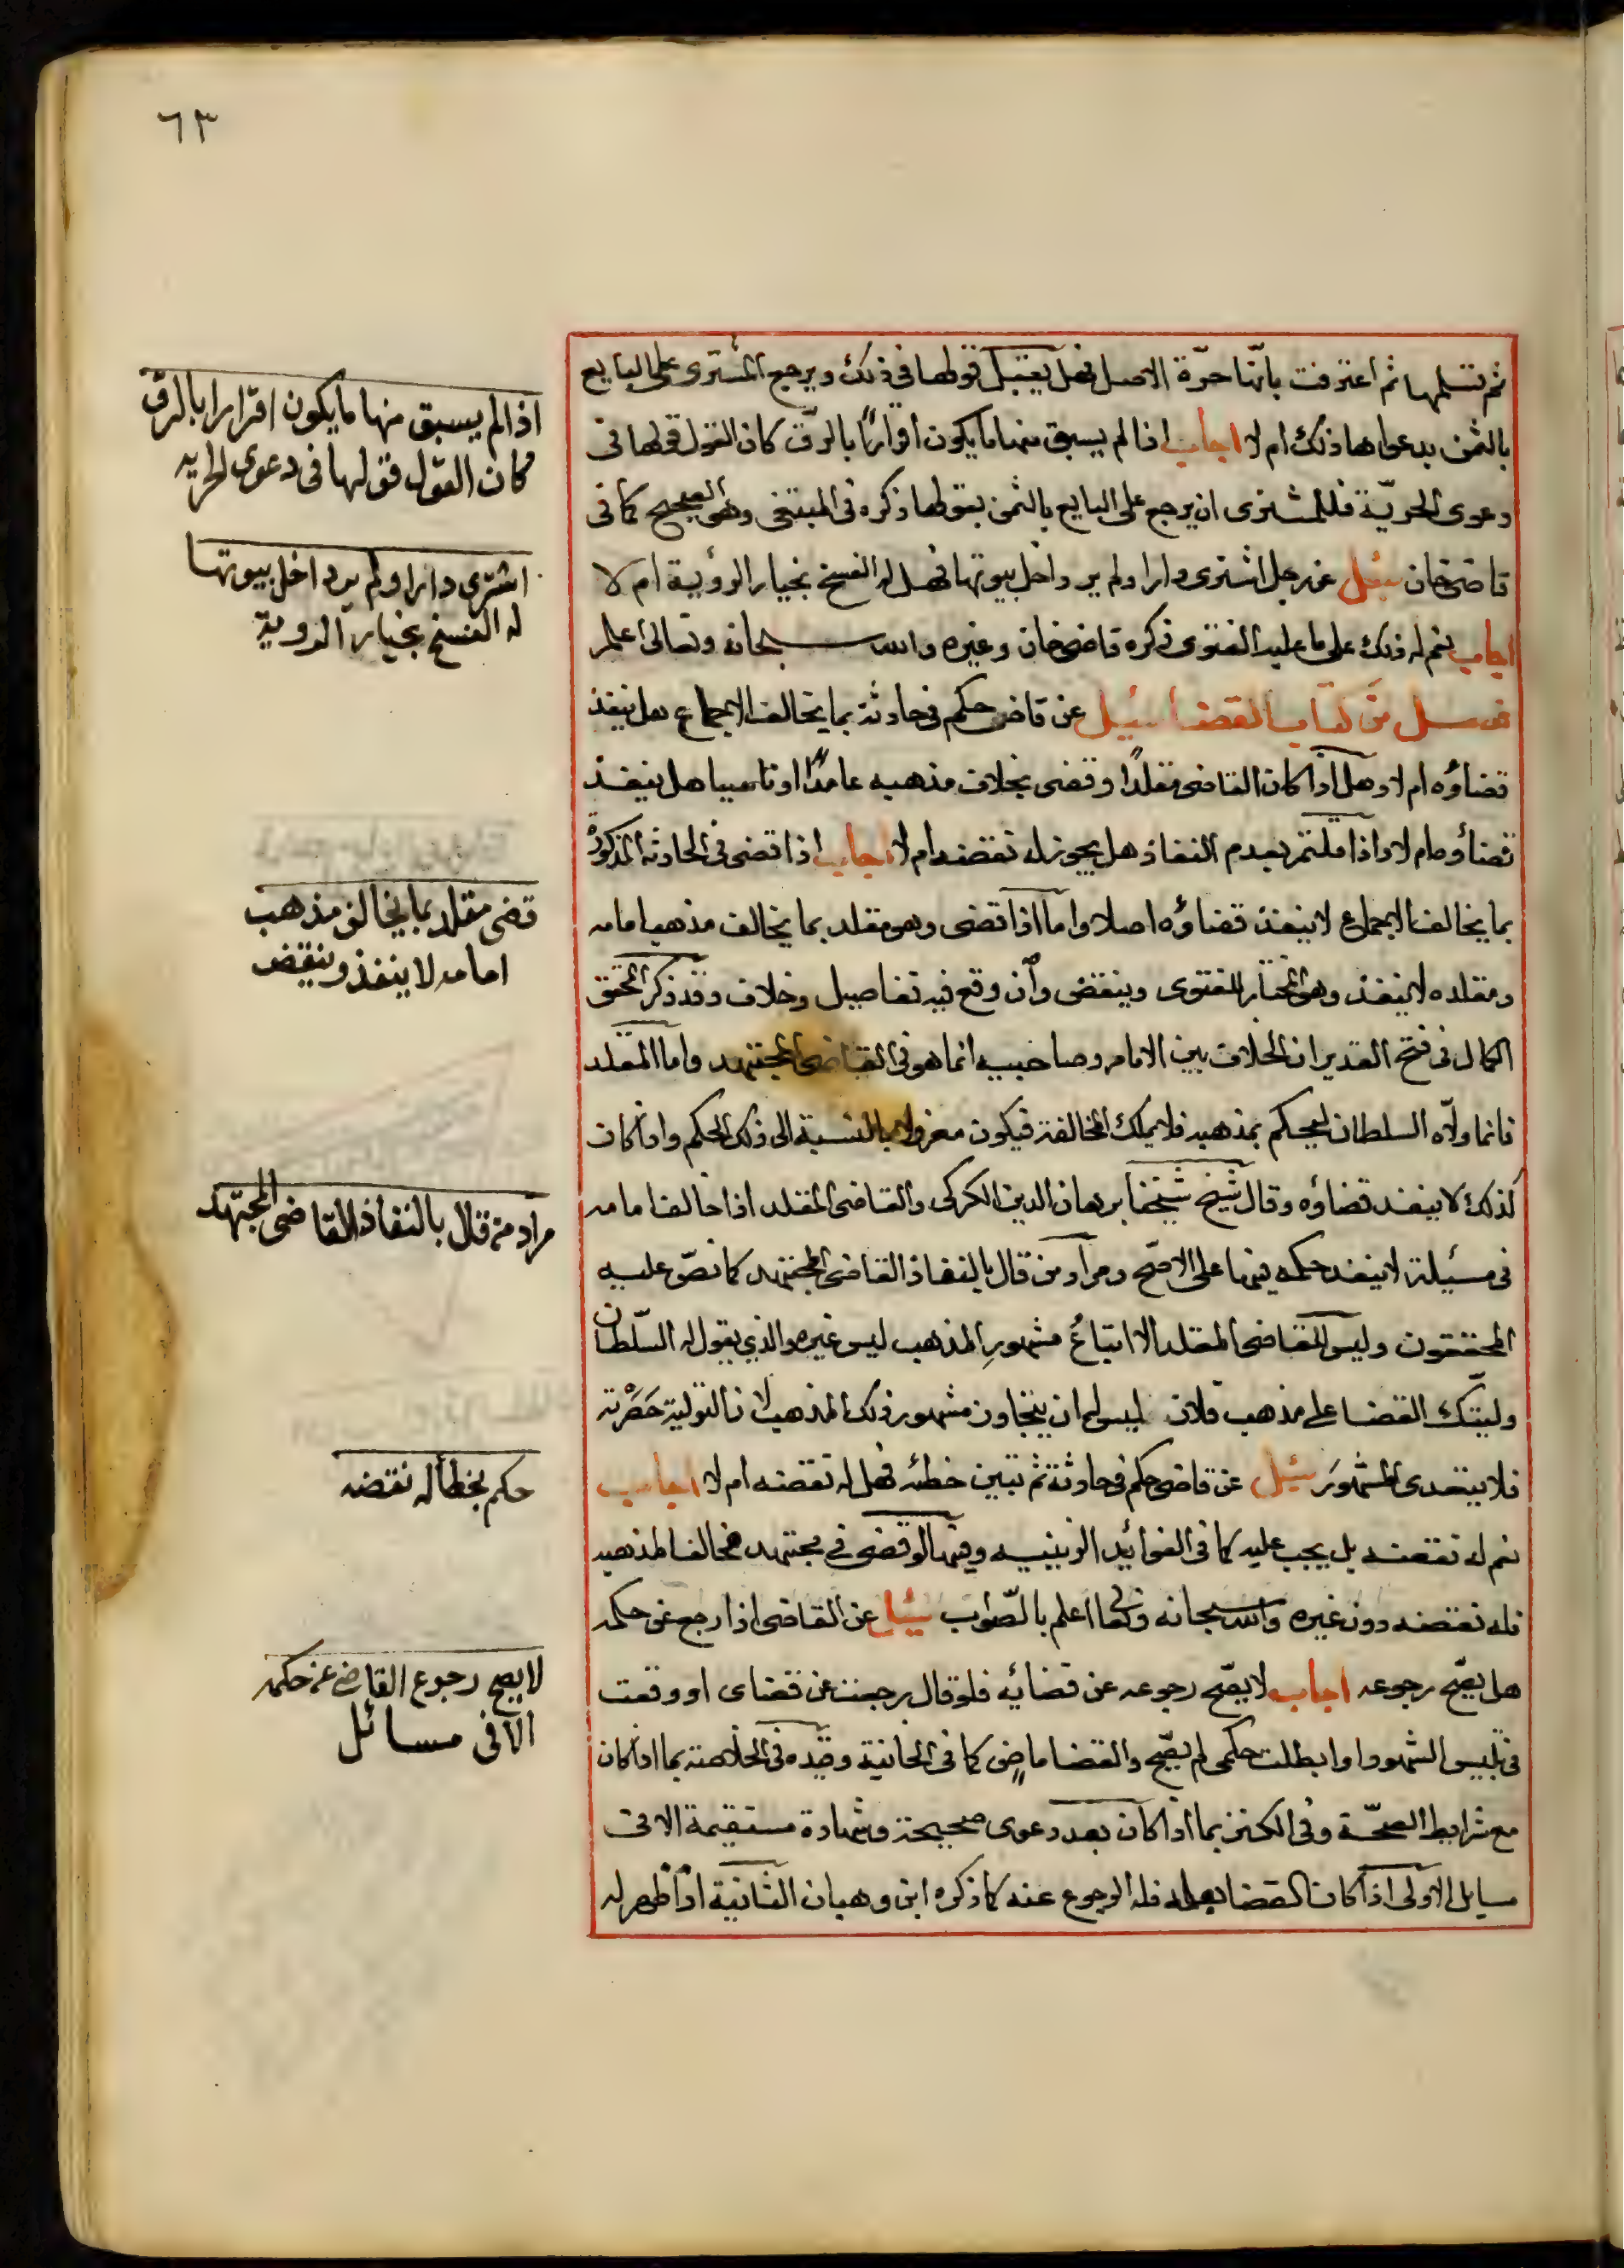 ٦٣
ثم تسلمها ثم اعترفت بانّها حرّة الاصل فهل يقبل قولها فى ذلك ويرجع المشترى على البايع
بالثمن بدعواها ذلك ام لا اجاب اذا لم يسبق منها ما يكون اقرارًا بالرقّ كان القول قولها فى
دعوى الحريّة فللمشترى ان يرجع على البايع بالثمن بقولها ذكره فى المبتغى وهو الصحيح كما فى
قاضى خان سئل عن رجل اشترى دارا ولم ير داخل بيوتها فهل له الفسخ بخيار الرؤية ام لا
اجاب نعم له ذلك على ما عليه الفتوى ذكره قاضى خان وغيره والله سبحانه وتعالى اعلم
فصل من كتاب القضا سئل عن قاض حكم فى حادثة بما يخالف الاجماع هل ينفذ
قضاؤه ام لا وهل اذا كان القاضى مقلدًا وقضى بخلاف مذهبه عامدًا او ناسيا هل ينفذ
قضاؤه ام لا واذا قلتم بعدم النفاذ هل يجوز له نقضه ام لا اجاب اذا قضى فى الحادثة المذكورة
بما يخالف الاجماع لا ينفذ قضاؤه اصلا واما اذا قضى وهو مقلد بما يخالف مذهب امامه
ومقلده لا ينفذ وهو المختار للفتوى وينقض وان وقع فيه تفاصيل وخلاف وقد ذكر المحقق
الكمال فى فتح القدير ان الخلاف بين الامام وصاحبيه انما هو فى القاضى المجتهد واما المقلد
فانما ولاه السلطان ليحكم بمذهبه فلا يملك المخالفة فيكون معزولا بالنسبة الى ذلك الحكم واذا كان
كذلك لا ينفذ قضاؤه وقال شيخ شيخنا برهان الدين الكركى والقاضى المقلد اذا خالف امامه
فى مسئلة لا ينفذ حكمه فيها على الاصح ومراد من قال بالنفاذ القاضى المجتهد كما نصّ عليه
المحققون وليس للقاضى المقلد الا اتباع مشهور المذهب ليس غيره والذي يقول له السلطان
وليتك القضا على مذهب فلان ليس له ان يتجاوز مشهور ذلك المذهب لان التولية حصرته
فلا يتعدى المشهور سئل عن قاضى حكم فى حادثة ثم تبين خطئه فهل له نقضه ام لا اجاب
نعم له نقضه بل يجب عليه كما فى الفوائد الزينيه وفيها لو قضى فى مجتهد مخالفا لمذهبه
فله نقضه دون غيره والله سبحانه وتعالى اعلم بالصّواب سئل عن القاضى اذا رجع عن حكمه
هل يصحّ رجوعه اجاب لا يصحّ رجوعه عن قضائه فلو قال رجعت عن قضاى او وقعت
فى تلبيس الشهود او ابطلت حكمى لم يصحّ والقضا ماض كما فى الخانية وقيده فى الخلاصة بما اذا كان
مع شرايط الصحّة وفى الكنز بما اذا كان بعد دعوى صحيحة وشهادة مستقيمة الا فى
مسايل الاولى اذا كان القضا بعلمه فله الرجوع عنه كما ذكره ابن وهبان الثانية اذا ظهر له
اذا لم يسبق منها ما يكون اقرارا بالرق
كان القول قولها فى دعوى الحريه
اشترى دارا ولم ير داخل بيوتها
له الفسخ بخيار الروية
قضى مقلد بما يخالف مذهب
امامه لا ينفذ وينقض
مراد من قال بالنفاذ القاضى المجتهد
حكم بخطأ له نقضه
لا يصح رجوع القاضى عن حكمه
الا فى مسائل